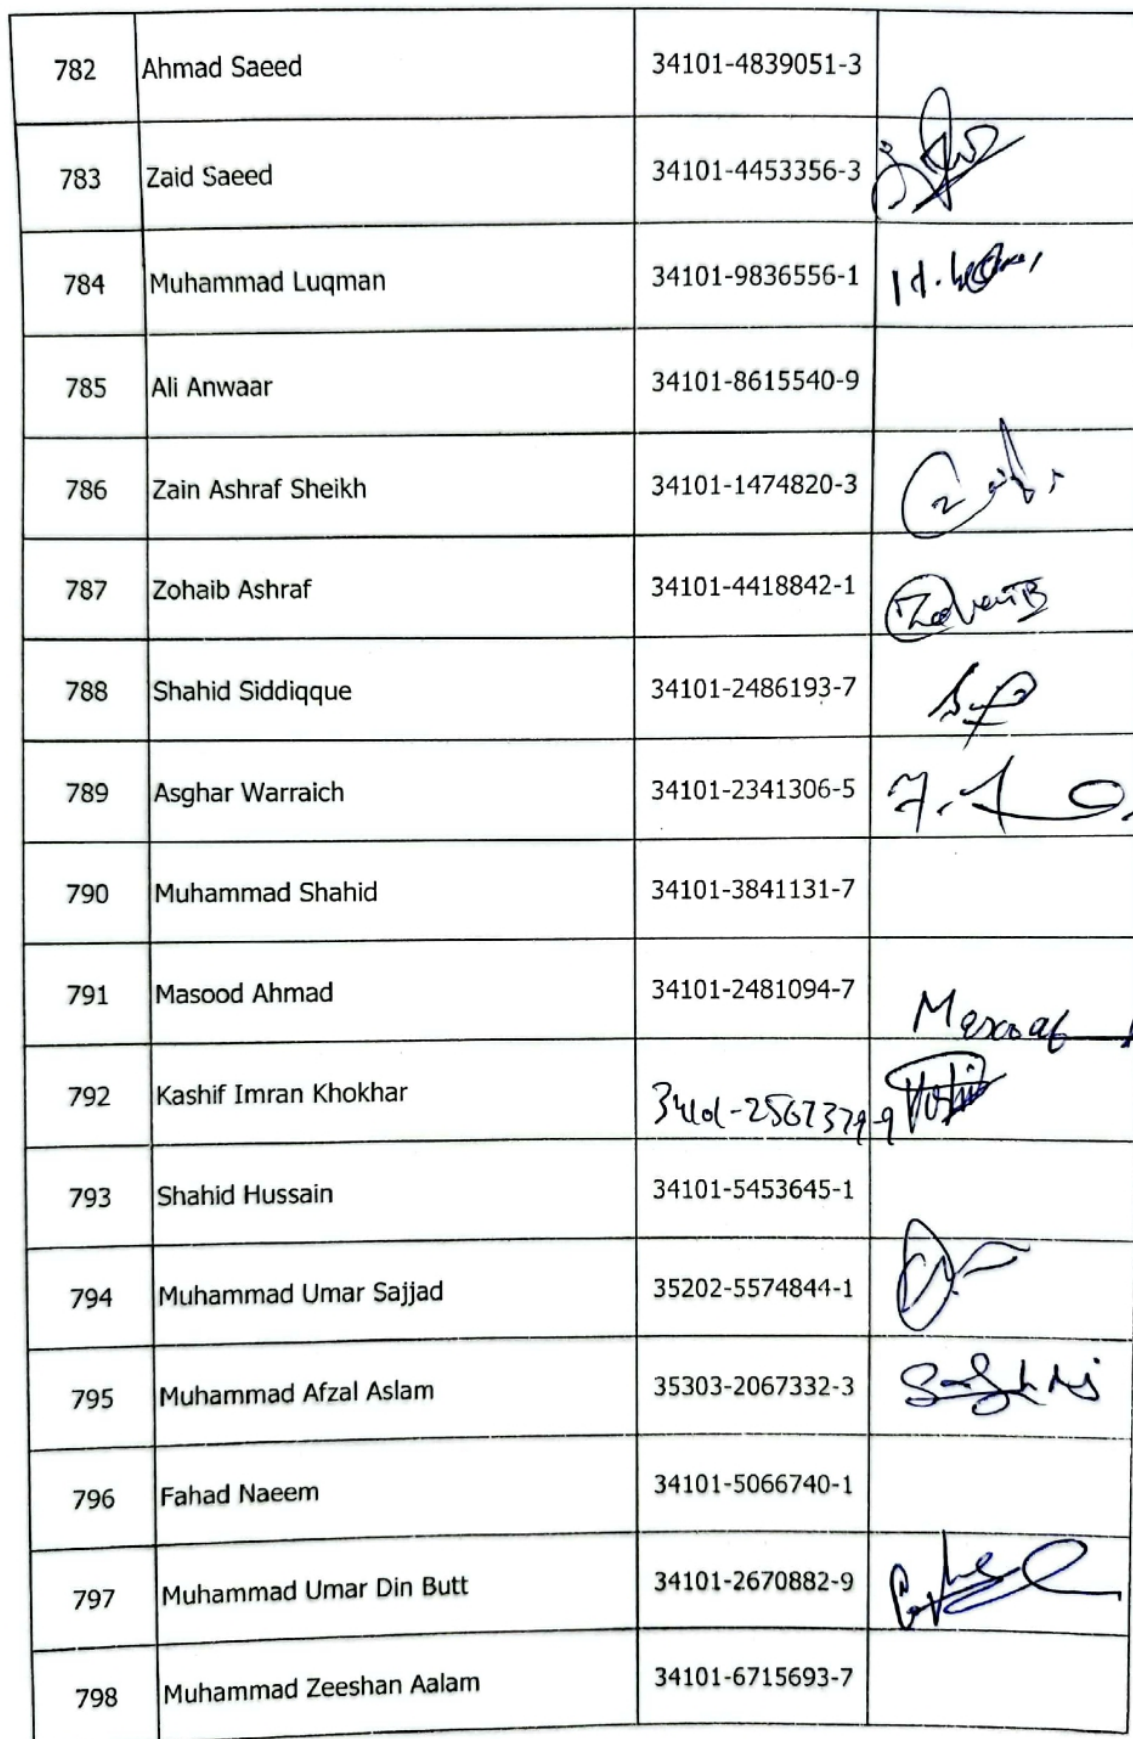 782 Ahmad Saeed 34101-4839051-3
783 Zaid Saeed 34101-4453356-3
784 Muhammad Luqman 34101-9836556-1
785 Ali Anwaar 34101-8615540-9
786 Zain Ashraf Sheikh 34101-1474820-3
787 Zohaib Ashraf 34101-4418842-1
788 Shahid Siddiqque 34101-2486193-7
789 Asghar Warraich 34101-2341306-5
790 Muhammad Shahid 34101-3841131-7
791 Masood Ahmad 34101-2481094-7
792 Kashif Imran Khokhar 34101-2567379-9
793 Shahid Hussain 34101-5453645-1
794 Muhammad Umar Sajjad 35202-5574844-1
795 Muhammad Afzal Aslam 35303-2067332-3
796 Fahad Naeem 34101-5066740-1
797 Muhammad Umar Din Butt 34101-2670882-9
798 Muhammad Zeeshan Aalam 34101-6715693-7